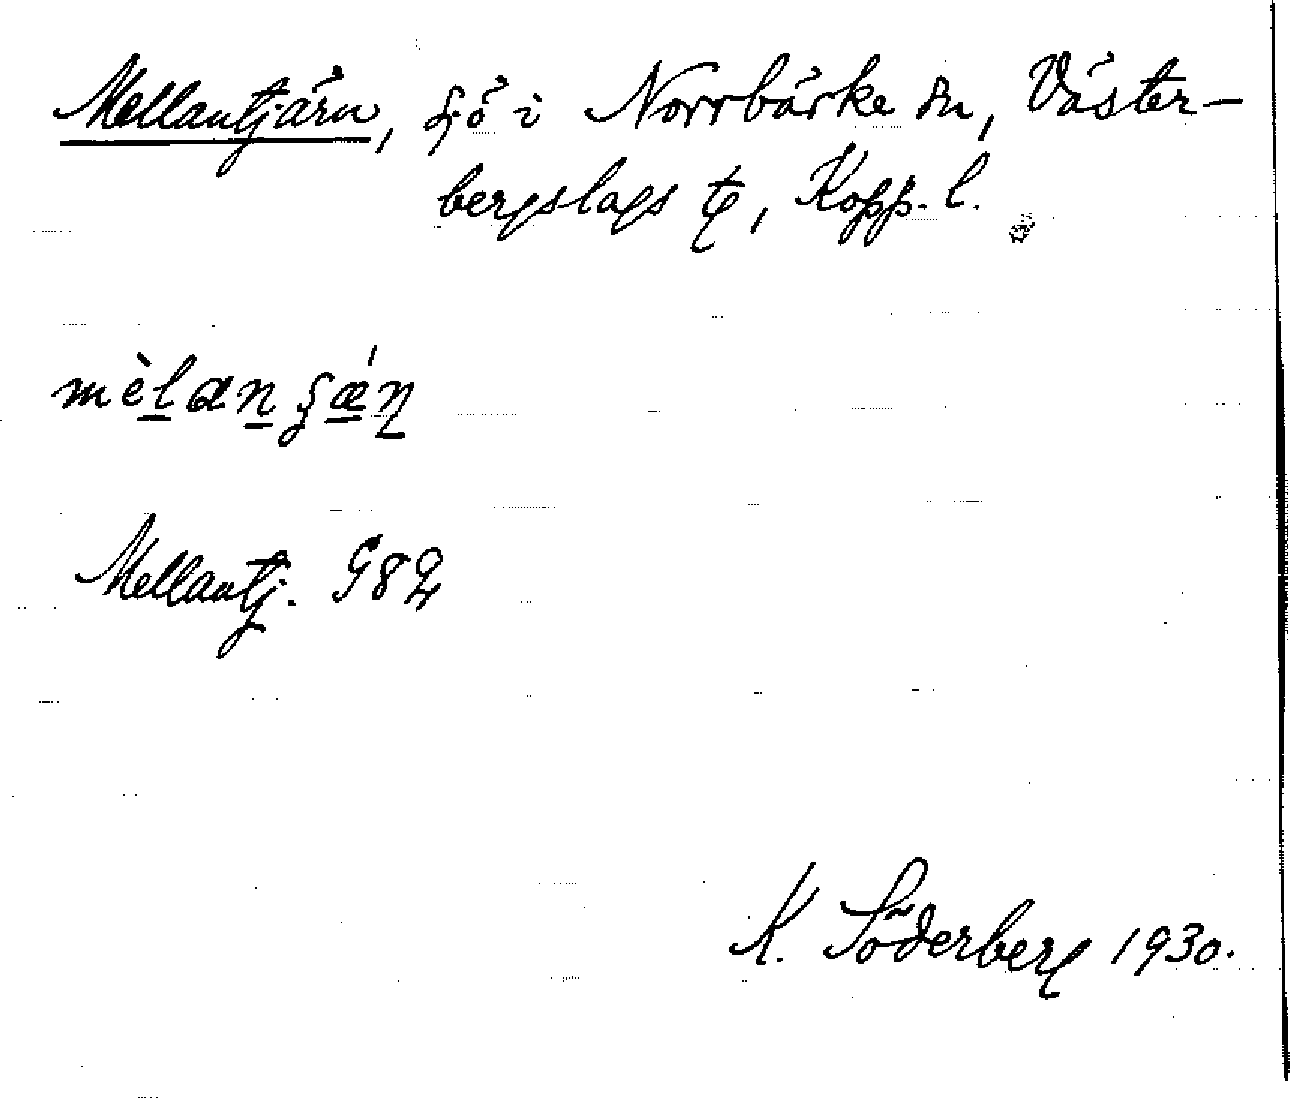 Mellantjärn, sjö i Norrbärke sn, Väster-
bergslags tg, Kopp. l.
mèlanʂǽn
Mellantj. G82
K. Söderberg 1930.